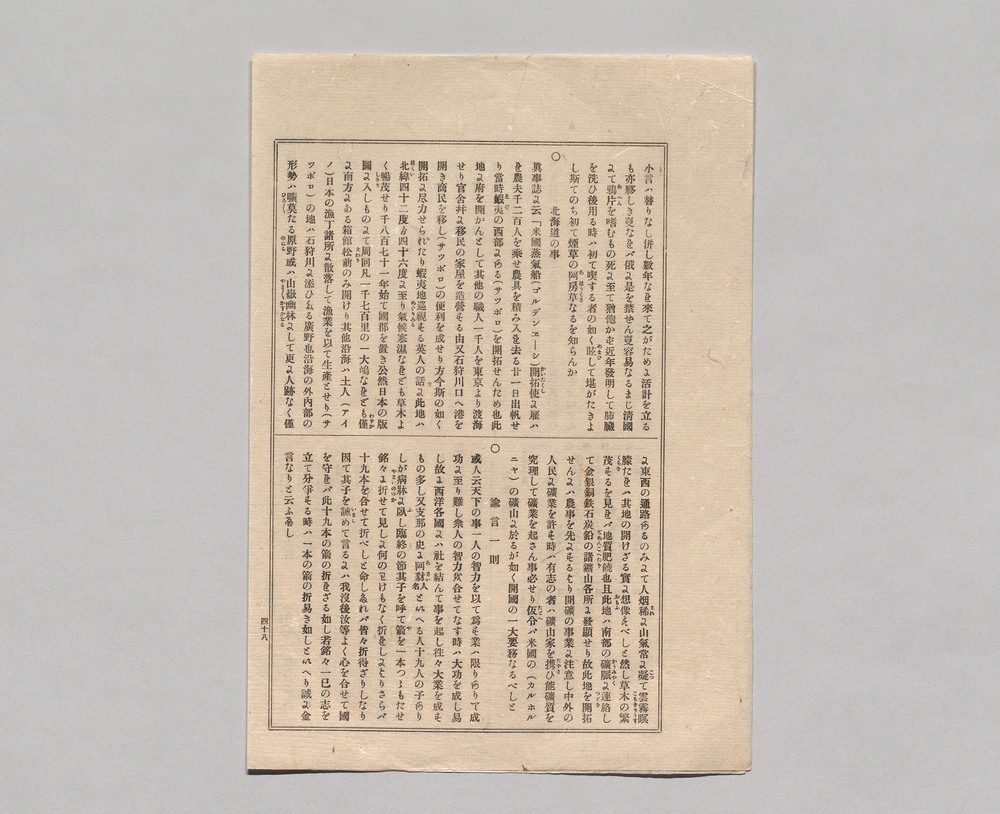 小言ハ替りなし併し數年なを來て之がためよ活計を立る
も亦夥しき𡢳なをバ俄よ是を禁せん𡢳容易なるまじ淸國
よて鴉片を嗜むもの死よ至て猶倦かを近年發明して肺臟
を洗ひ後用る時ハ初て喫する者の如く眩して堪がたきよ
し斯てのち初て煙草の阿房草なるを知らんか
○
北海道の事
眞事誌よ云「米國蒸氣船(ゴルデンヱーシ)開拓使よ雇ハ
を農夫千二百人を乘せ農具を積み入を去る廿一日出帆せ
り當時蝦夷の西部よゐる(サツポロ)を開拓せんため也此
地よ府を開かんとして其他の職人一千人を東京より渡海
せり官舍幷よ移民の家屋を造營をる由又石狩川口へ港を
開き商民を移し(サツポロ)の便利を成せり方今斯の如く
開拓よ尽力せられたり蝦夷地巡視をる英人の話よ此地ハ
北緯四十二度ゟ四十六度よ至り氣候寒濕なをども草木よ
く暢茂せり千八百七十一年始て國郡を置き公然日本の版
圖よ入しものよて周回凡一千七百里の一大嶋なをども僅
よ南方よある箱館松前のみ開け其他沿海ハ土人(アイ
ノ)日本の漁丁諸所よ散落して漁業を以て生產とせり(サ
ツポロ)の地ハ石狩川よ添ひたる廣野也沿海の外内部の
形勢ハ曠莫たる原野或ハ山嶽幽林よして更よ人跡なく僅
よ東西の通路ゐるのみよて人烟稀よ山氣常よ凝て雲霧瞑
朦たをハ其地の開けざる實よ想像をべしと然し草木の繁
茂をるを見をバ地質肥饒也且此地ハ南部の礦脈よ連絡し
て金銀銅鉄石炭鉛の諸礦山各所よ發顯せり故此地を開拓
せんよハ農事を先よをるゟり開礦の事業よ注意し中外の
人民よ礦業を許を時ハ有志の者ハ礦山家を携ひ能礦質を
究理して礦業を起さん事必せり仮令バ米國の(カルホル
ニヤ)の礦山よ於るが如く開國の一大要務なるべしと
○
諭言一則
或人云天下の事一人の智力を以て爲を業ハ限りゐりて成
功よ至り難し衆人の智力を合せてなす時ハ大功を成し易
し故よ西洋各國よハ社を結んて事を起し往々大業を成を
もの多し又支那の史よ阿豺人名といへる人十九人の子ゐり
しが病牀よ臥し臨終の節其子を呼て箭を一本つゝもたせ
銘々よ折せて見しよ何のわけもなく折をしゟりさらバ
十九本を合せて折べしと命しゐれバ皆々折得ざりしなり
因て其子を諫めて言るよハ我沒後汝等よく心を合せて國
を守をバ此十九本の箭の折をざる如し若銘々一己の志を
立て分爭をる時ハ一本の箭の折易き如しといへり誠よ金
言なりと云ふゐし
四十八